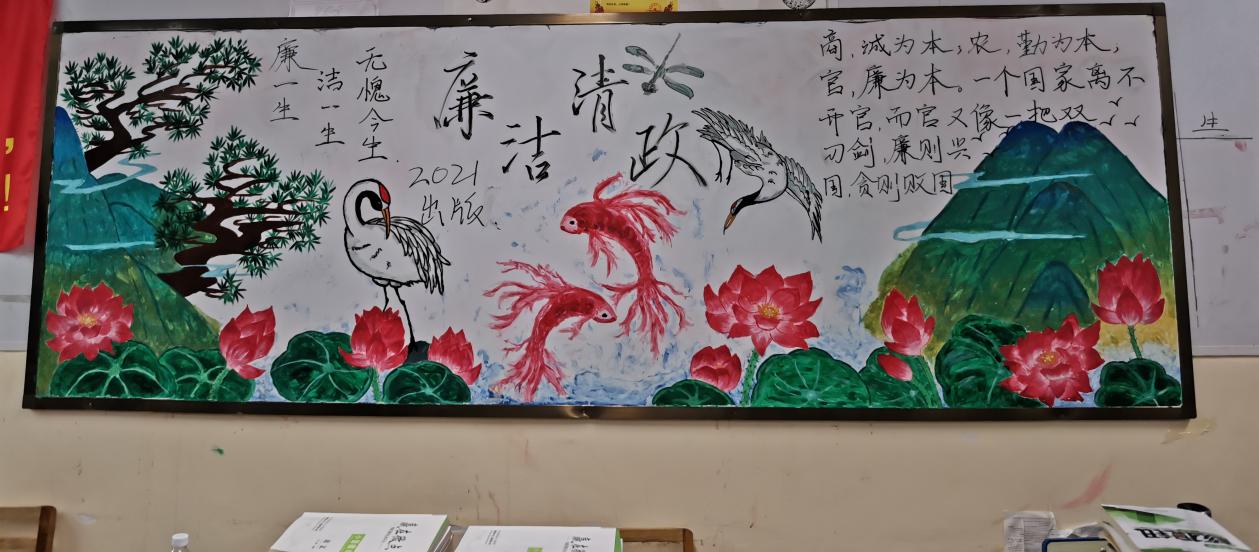 廉一生
洁一生
无愧今生.
廉洁清政
2021
出版.
商,诚为本;农,勤为本,
官,廉为本。一个国家离不
开官,而官又像一把双
刃剑,廉则兴
国,贪则败国
生
!